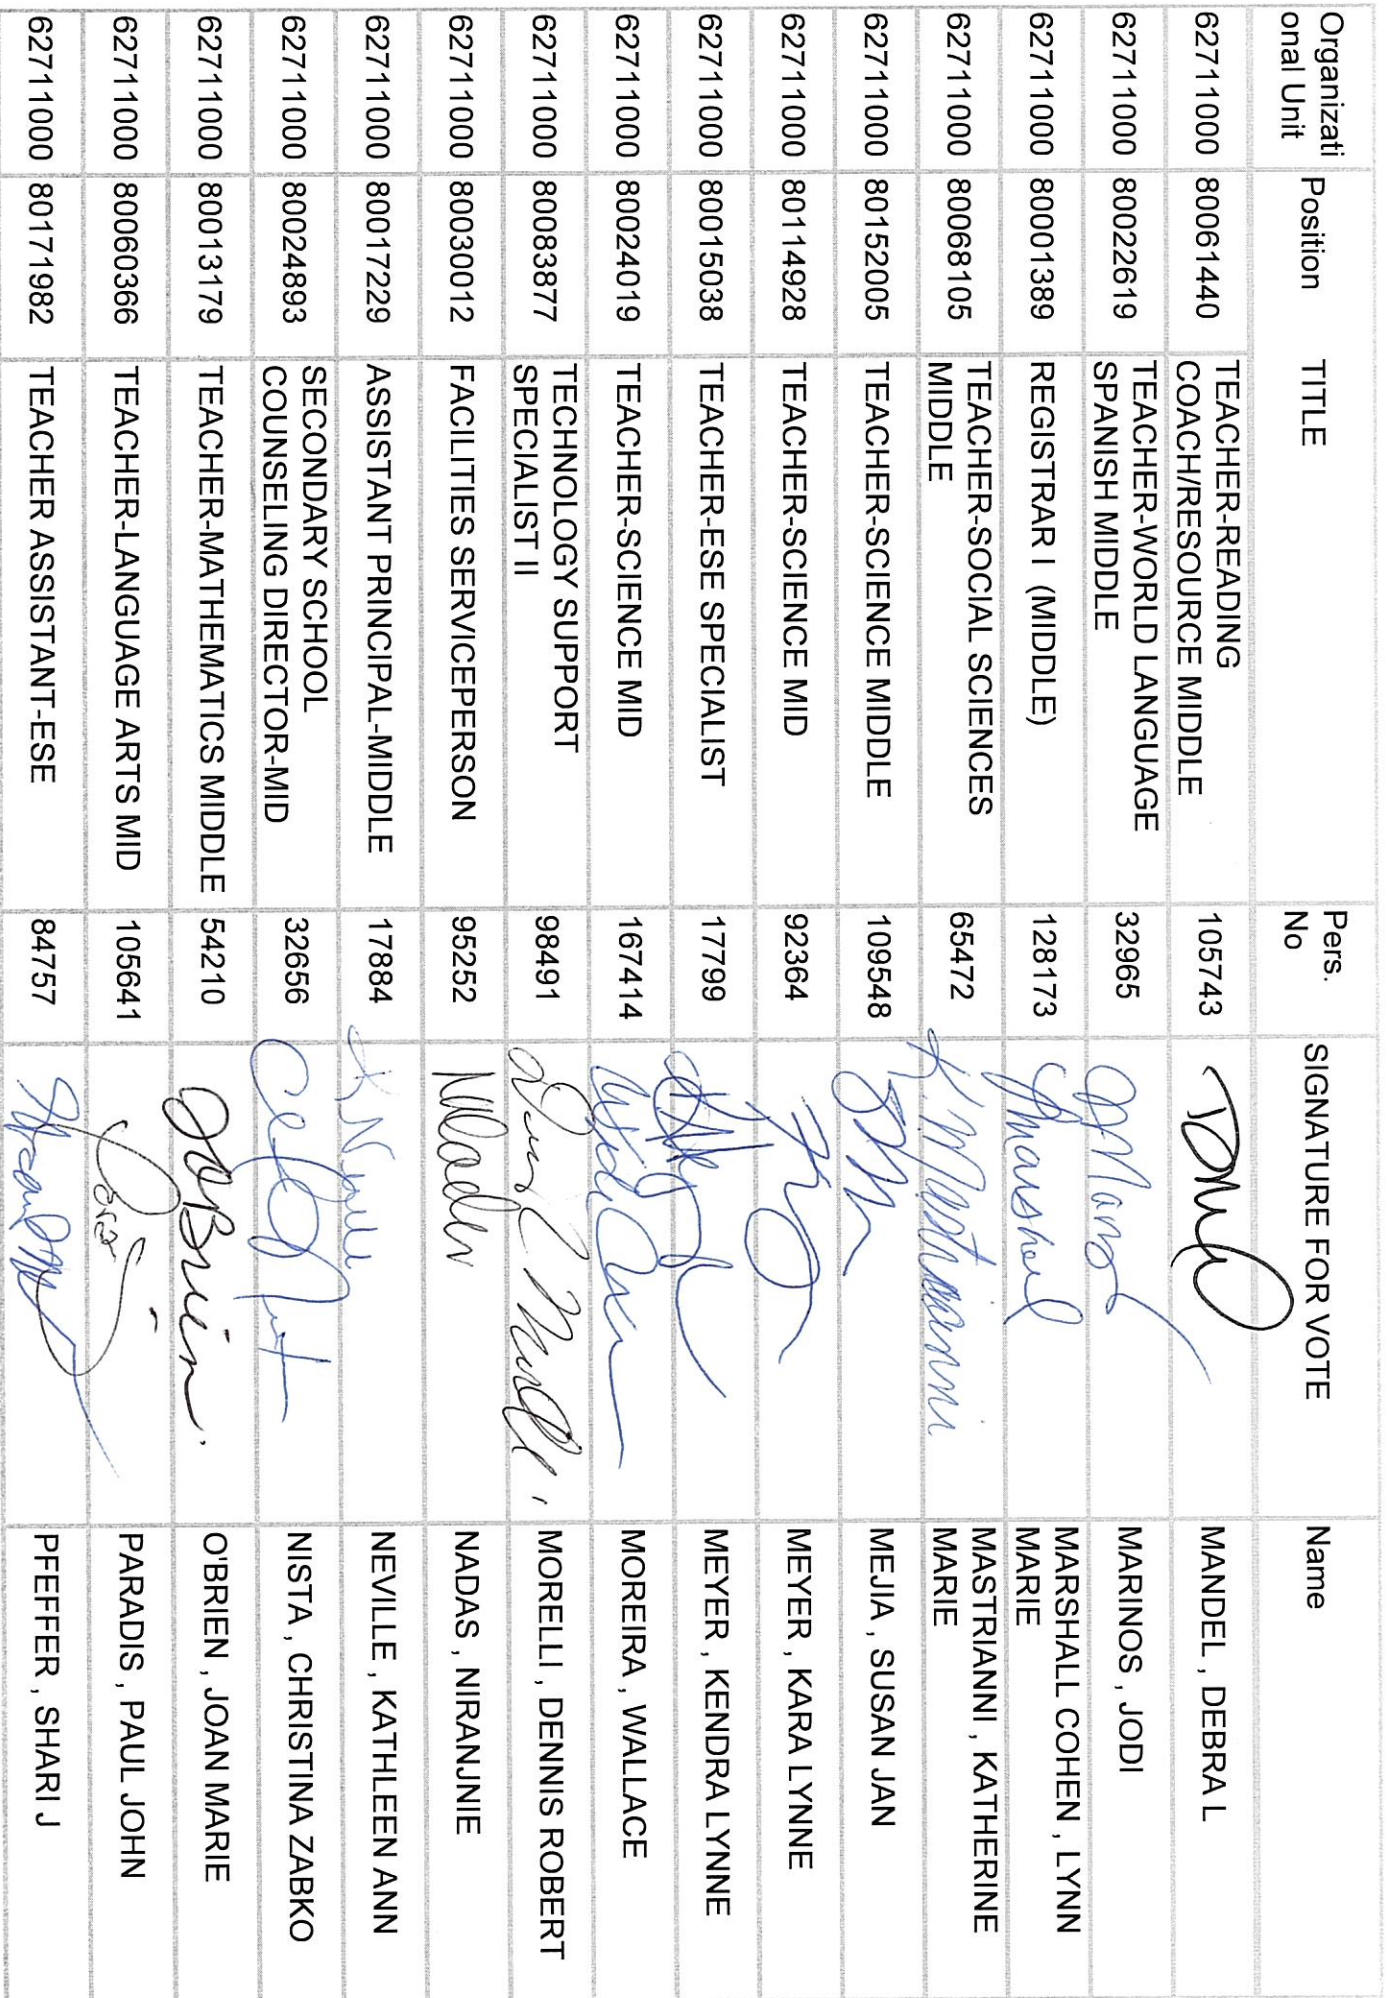 Organizati
onal Unit
Position
TITLE
Pers.
No
SIGNATURE FOR VOTE
Name
62711000 80061440 TEACHER-READING
COACH/RESOURCE MIDDLE
105743 MANDEL , DEBRA L
62711000 80022619 TEACHER-WORLD LANGUAGE
SPANISH MIDDLE
32965 MARINOS , JODI
62711000 80001389 REGISTRAR I (MIDDLE) 128173 MARSHALL COHEN , LYNN
MARIE
62711000 80068105 TEACHER-SOCIAL SCIENCES
MIDDLE
65472 K. Mastrianni MASTRIANNI , KATHERINE
MARIE
62711000 80152005 TEACHER-SCIENCE MIDDLE 109548 MEJIA , SUSAN JAN
62711000 80114928 TEACHER-SCIENCE MID 92364 MEYER , KARA LYNNE
62711000 80015038 TEACHER-ESE SPECIALIST 17799 MEYER , KENDRA LYNNE
62711000 80024019 TEACHER-SCIENCE MID 167414 MOREIRA , WALLACE
62711000 80083877 TECHNOLOGY SUPPORT
SPECIALIST II
98491 MORELLI , DENNIS ROBERT
62711000 80030012 FACILITIES SERVICEPERSON 95252 NADAS , NIRANJNIE
62711000 80017229 ASSISTANT PRINCIPAL-MIDDLE 17884 NEVILLE , KATHLEEN ANN
62711000 80024893 SECONDARY SCHOOL
COUNSELING DIRECTOR-MID
32656 NISTA , CHRISTINA ZABKO
62711000 80013179 TEACHER-MATHEMATICS MIDDLE 54210 JOBrien O'BRIEN , JOAN MARIE
62711000 80060366 TEACHER-LANGUAGE ARTS MID 105641 PARADIS , PAUL JOHN
62711000 80171982 TEACHER ASSISTANT-ESE 84757 PFEFFER , SHARI J